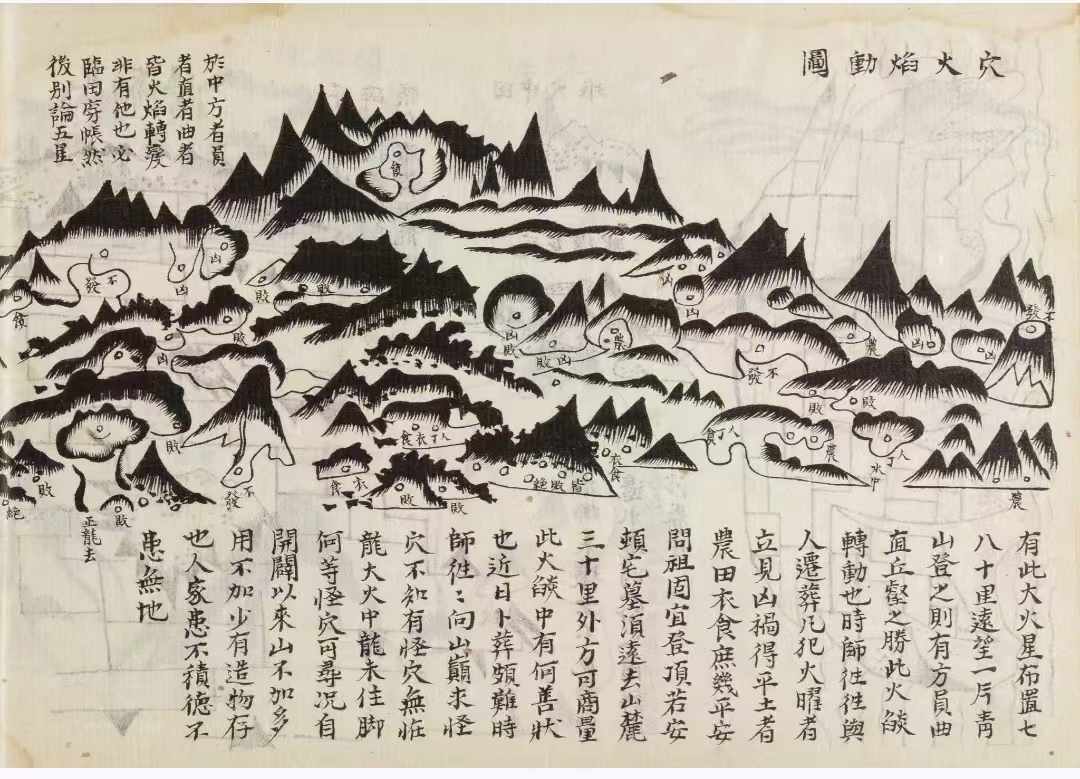 穴火焰動圖
於中方者員
者直者曲者
皆火焰轉变
非有他也必
臨田旁帳然
後别論五星
不發
凶
凶
敗
敗
敗
凶
凶
凶
敗
敗
凶
農
不發
農
凶
凶
不發
敗
敗
敗
不發
人丁衣食
衣食
敗
敗
皆敗絕
衣食
人丁食
農
人丁
水中
農
絕
敗
敗
正龍去
有此大火星布置七
八十里遠望一片青
山登之則有方員曲
直丘壑之勝此火燄
轉動也時師徃徃與
人遷葬凢犯火曜者
立見凶禍得平土者
農田衣食庶幾平安
問祖固宜登頂若安
頓宅墓須遠去山麓
三十里外方可商量
此火燄中有何善狀
也近日卜葬頗難時
師徃〻向山巔求怪
穴不知有怪穴無恠
龍大火中龍未住脚
何等怪穴可尋况自
開闢以來山不加多
用不加少有造物存
也人家患不積德不
患無地